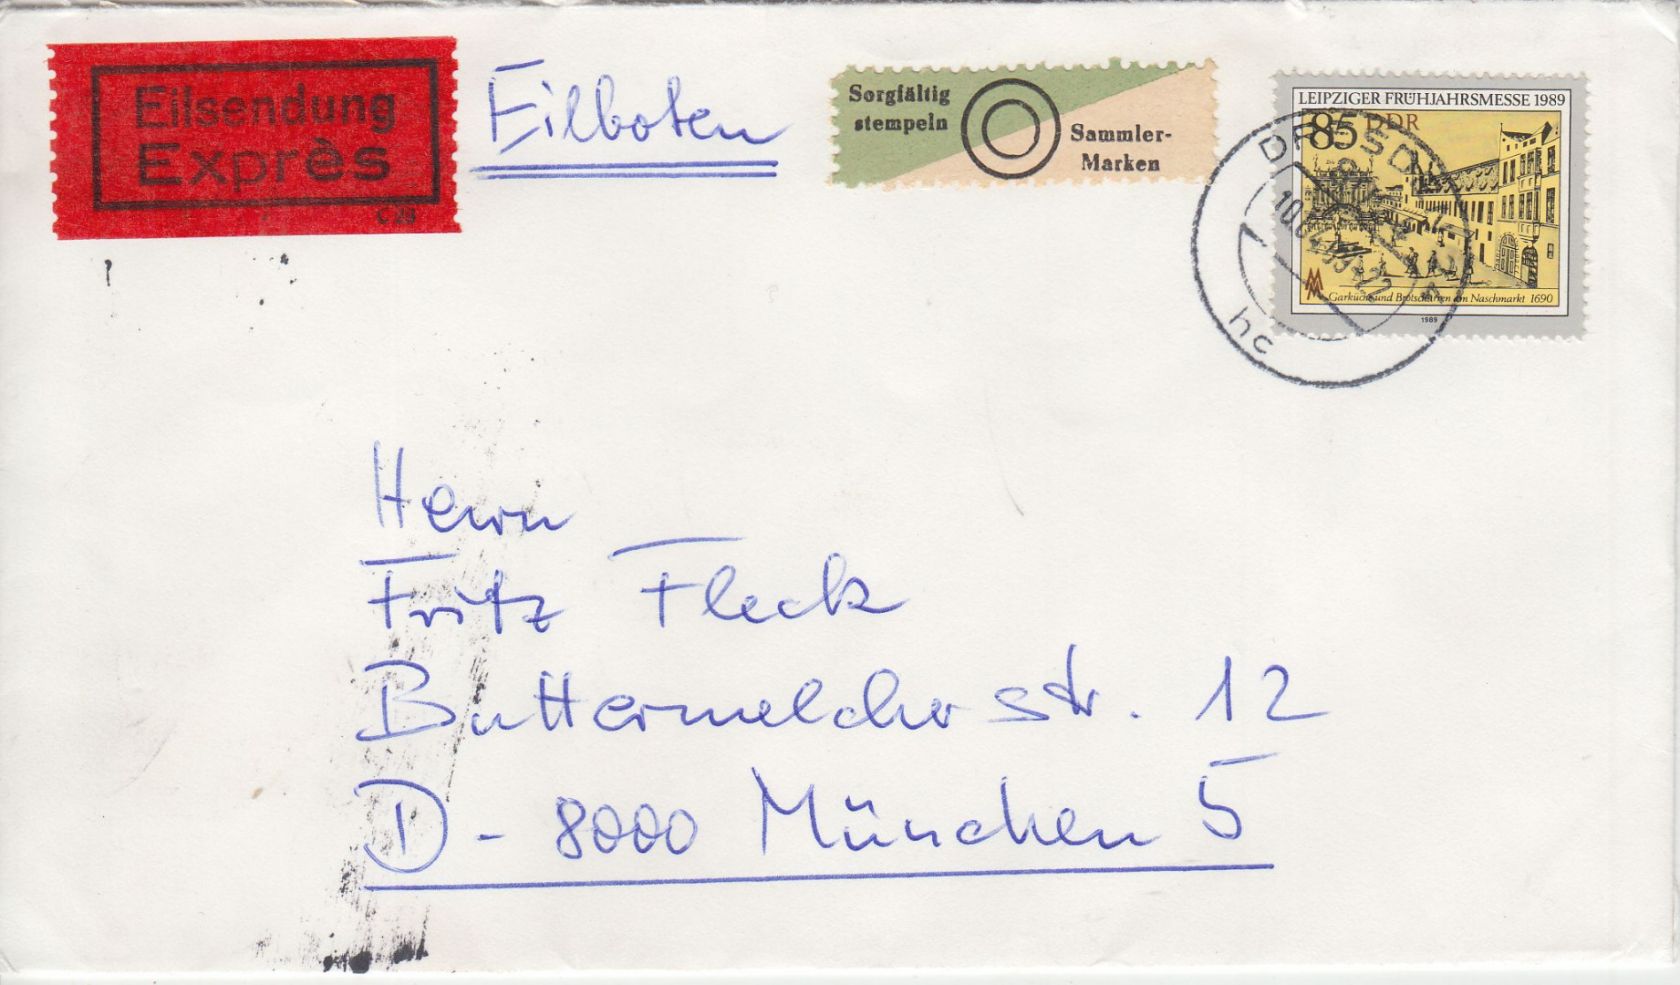 Eilsendung
Exprès
C 29
Eilboten
Sorgfältig
stempeln
Sammler-
Marken
LEIPZIGER FRÜHJAHRSMESSE 1989
85 DDR
MM
Garküche und Brotscharren am Naschmarkt 1690
1989
DRESDEN
hc
Herrn
Fritz Fleck
Buttermelcherstr. 12
D - 8000 München 5